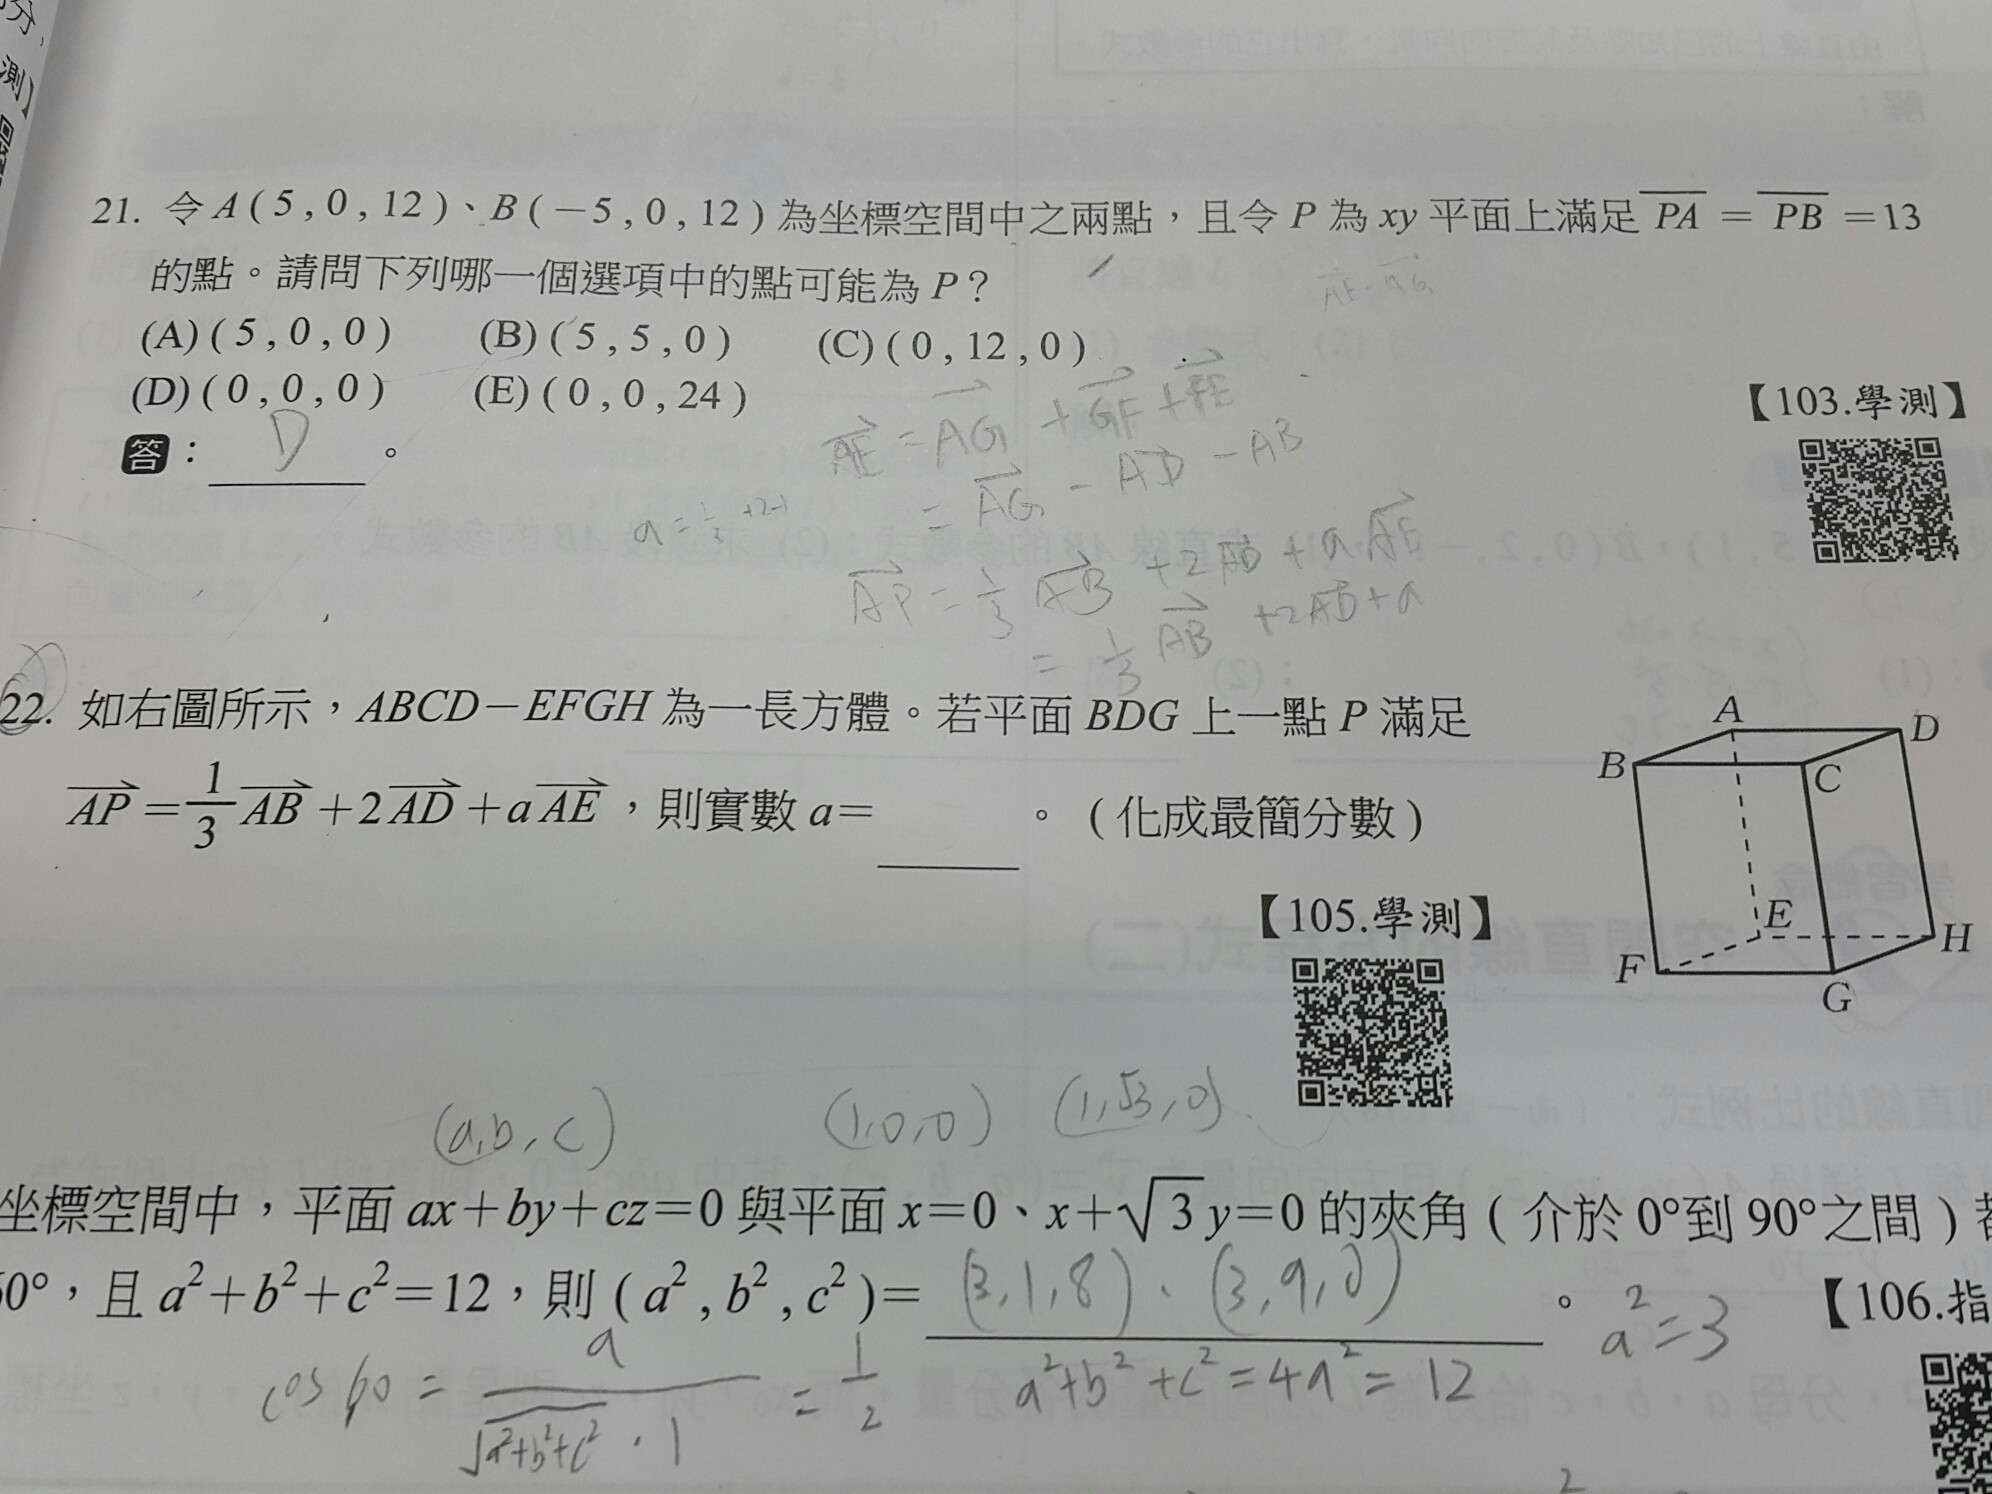 分,
測】
21. 令 A ( 5 , 0 , 12 )、B ( −5 , 0 , 12 ) 為坐標空間中之兩點，且令 P 為 xy 平面上滿足 PA = PB =13
的點。請問下列哪一個選項中的點可能為 P？
AE = AG
(A) ( 5 , 0 , 0 ) (B) ( 5 , 5 , 0 ) (C) ( 0 , 12 , 0 )
(D) ( 0 , 0 , 0 ) (E) ( 0 , 0 , 24 )
【103.學測】
答： D 。
AE = AG + GF + FE
= AG − AD − AB
a = 1/3 +2-1
AP = 1/3 AB + 2AD + a AE
= 1/3 AB + 2AD + a
22. 如右圖所示，ABCD−EFGH 為一長方體。若平面 BDG 上一點 P 滿足
AP = 1/3 AB + 2 AD + a AE，則實數 a= 。( 化成最簡分數 )
【105.學測】
A
D
B
C
E
H
F
G
(a,b,c) (1,0,0) (1,√3,0)
坐標空間中，平面 ax+by+cz=0 與平面 x=0、x+√3 y=0 的夾角 ( 介於 0°到 90°之間 )
60°，且 a²+b²+c²=12，則 ( a² , b² , c² )= (3,1,8)、(3,9,0) 。 a²=3 【106.指
cos60 = a / √a²+b²+c² · 1 = 1/2 a²+b²+c²=4a²=12